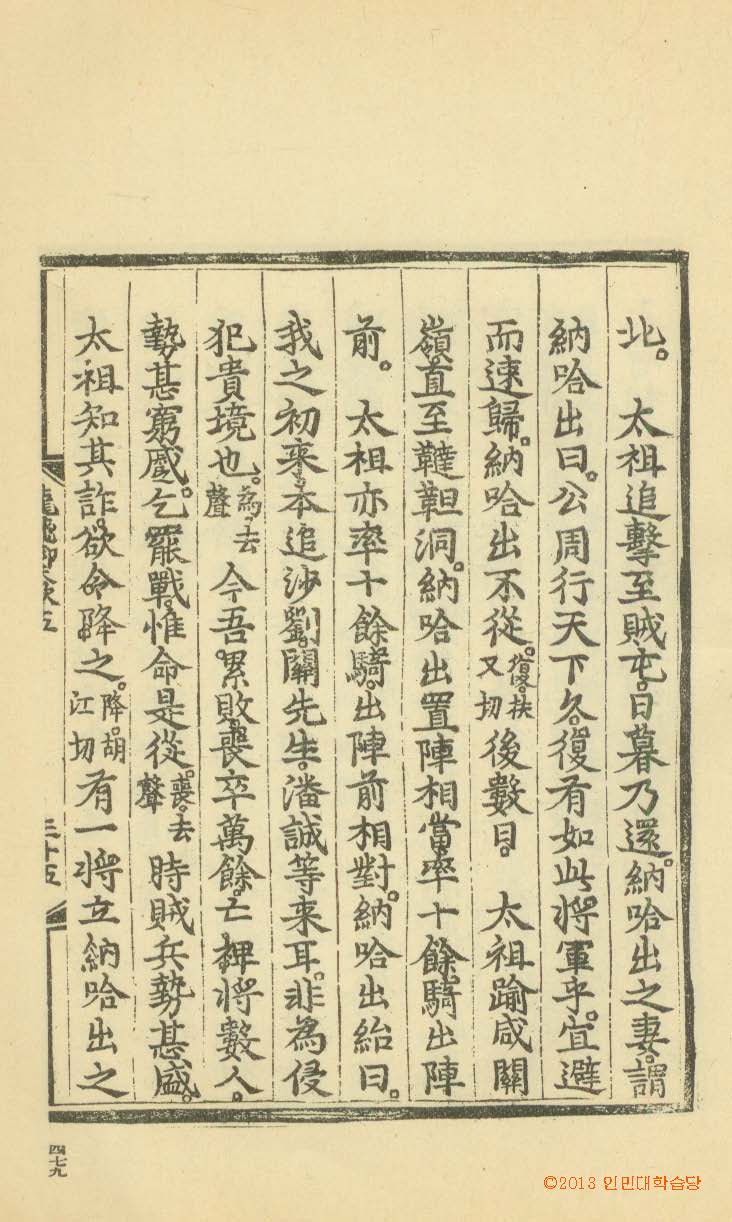 北。 太祖追擊至賊屯。日暮乃還。納哈出之妻。謂
納哈出曰。公周行天下久。復有如此將軍乎。宜避
而速歸。納哈出不從。復。扶又切後數日。 太祖踰咸關
嶺。直至韃靼洞。納哈出置陣相當。率十餘騎出陣
前。 太祖亦率十餘騎。出陣前相對。納哈出紿曰。
我之初来。本追沙劉。關先生。潘誠等来耳。非為侵
犯貴境也。為。去聲 今吾累敗。喪卒萬餘。亡裨將數人。
勢甚窮蹙。乞罷戰。惟命是從。喪。去聲 時賊兵勢甚盛。
太祖知其詐。欲令降之。降。胡江切 有一將立納哈出之
龍飛御天歌五 三十五
四七九
©2013 인민대학습당